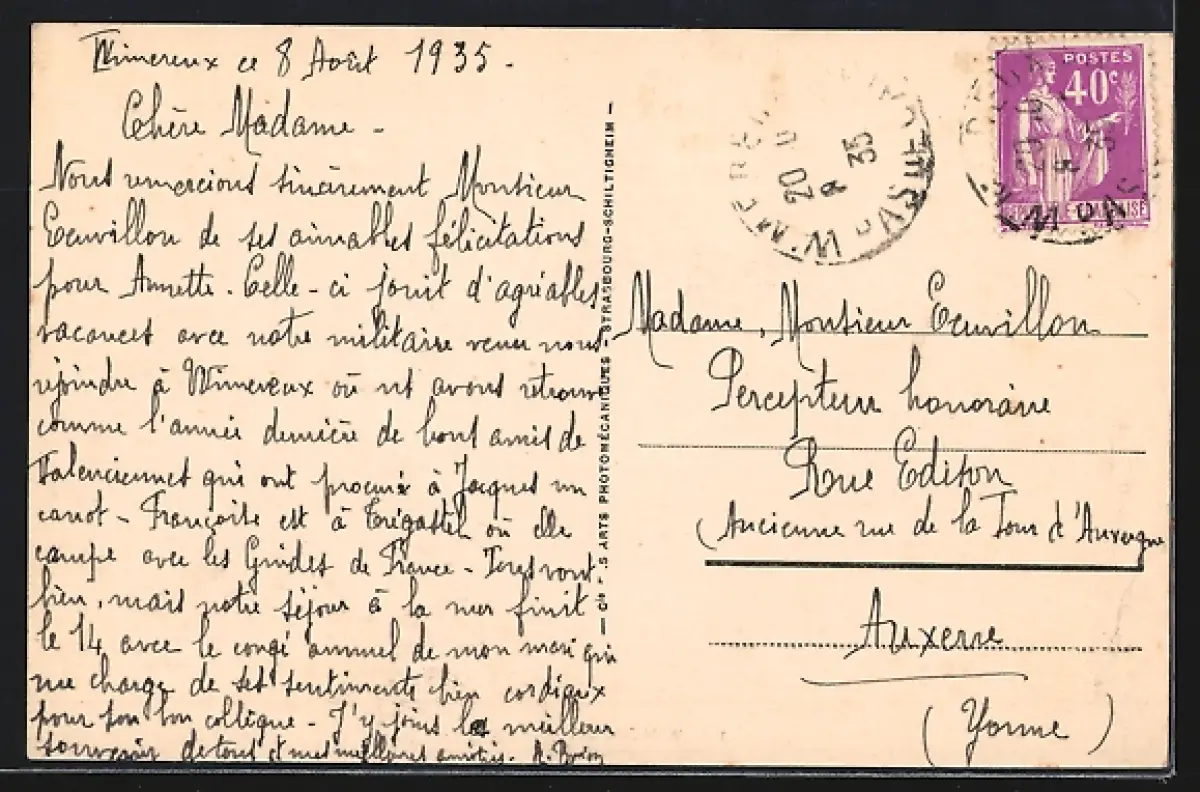 Wimereux ce 8 Août 1935.
Chère Madame -
Nous remercions sincèrement Monsieur
Ecuvillon de ses aimables félicitations
pour Annette. Celle-ci jouit d'agréables
vacances avec notre militaire venu nous
rejoindre à Wimereux où ns avons retrouvé
comme l'année dernière de bons amis de
Valenciennes qui ont procuré à Jacques un
canot - Françoise est à Trégastel où elle
campe avec les Guides de France - Tous vont
bien, mais notre séjour à la mer finit
le 14 avec le congé annuel de mon mari qui
me charge de ses sentiments bien cordiaux
pour son bon collègue - J'y joins les meilleurs
souvenirs de tous et mes meilleures amitiés.
S ARTS PHOTOMÉCANIQUES - STRASBOURG-SCHILTIGHEIM -
20
8
35
POSTES
40c
Madame, Monsieur Ecuvillon
Percepteur honoraire
Rue Edison
(Ancienne rue de la Tour d'Auvergne
Auxerre
(Yonne)